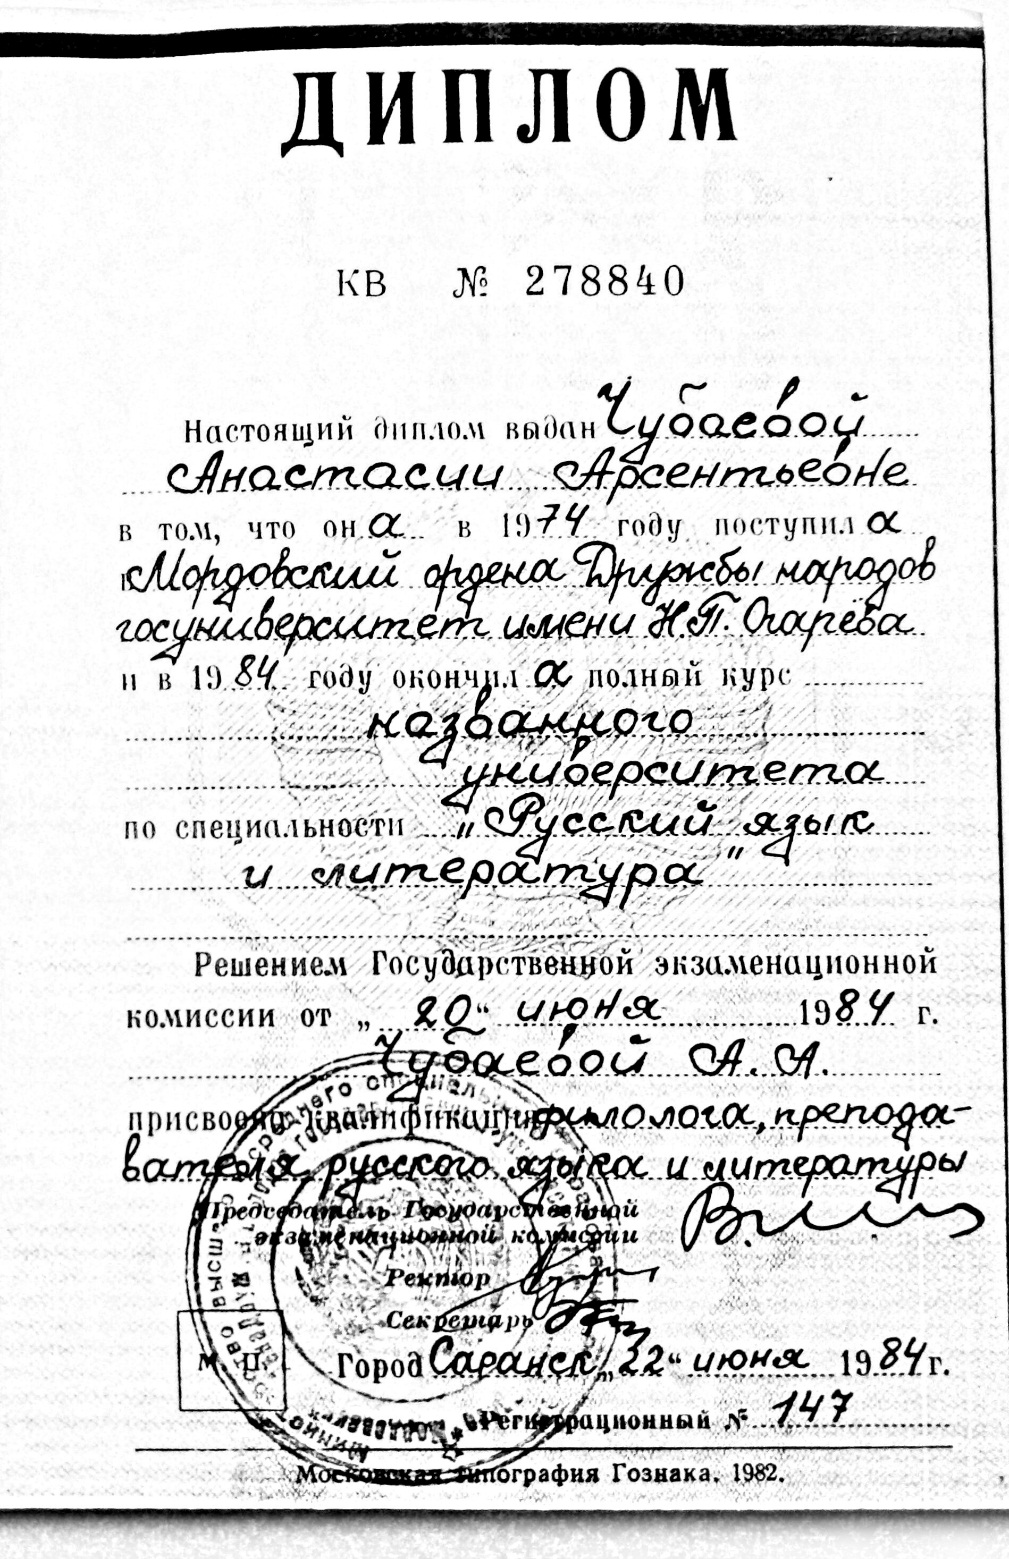 ДИПЛОМ
КВ № 278840
Настоящий диплом выдан Чубаевой
Анастасии Арсентьевне
в том, что она в 1974 году поступила
в Мордовский ордена Дружбы народов
госуниверситет имени Н.П. Огарёва
и в 1984 году окончила полный курс
названного
университета
по специальности „Русский язык
и литература"
Решением Государственной экзаменационной
комиссии от „20" июня 1984 г.
Чубаевой А. А.
присвоена квалификация филолога, препода-
вателя русского языка и литературы
Председатель Государственной
экзаменационной комиссии
Ректор
Секретарь
М. П.
Город Саранск „22" июня 1984 г.
Регистрационный № 147
Московская типография Гознака. 1982.